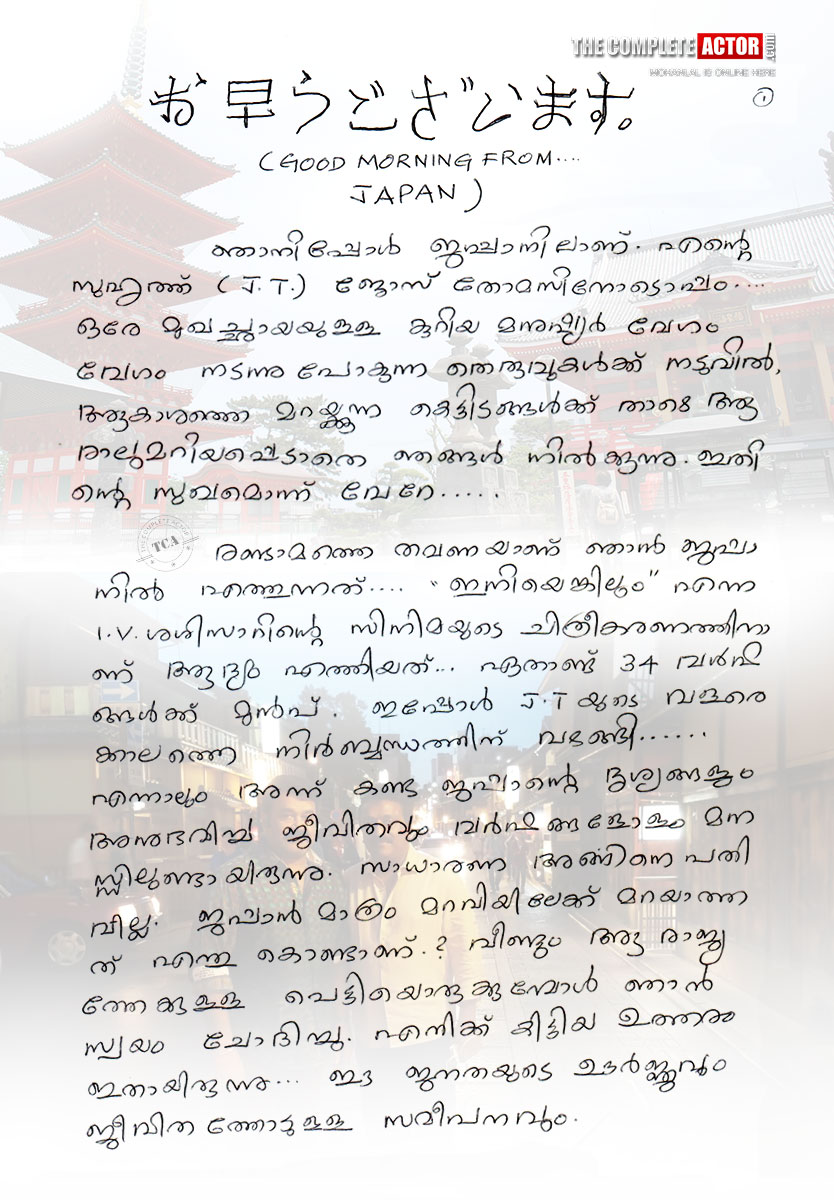 THE COMPLETE ACTOR .com
MOHANLAL IS ONLINE HERE
お早うございます。
1
(GOOD MORNING FROM....
JAPAN)
ഞാനിപ്പോൾ ജപ്പാനിലാണ്. എന്റെ
സുഹൃത്ത് (J.T.) ജോസ് തോമസിനോടൊപ്പം....
ഒരേ മുഖച്ഛായയുള്ള കുറിയ മനുഷ്യർ വേഗം
വേഗം നടന്നു പോകുന്ന തെരുവുകൾക്ക് നടുവിൽ,
ആകാശത്തെ മറയ്ക്കുന്ന കെട്ടിടങ്ങൾക്ക് താഴെ ആ
രാലുമറിയപ്പെടാതെ ഞങ്ങൾ നിൽക്കുന്നു. ഇതി
ന്റെ സുഖമൊന്ന് വേറേ.....
TCA
രണ്ടാമത്തെ തവണയാണ് ഞാൻ ജപ്പാ
നിൽ എത്തുന്നത്.... "ഇനിയെങ്കിലും" എന്ന
I.V. ശശിസാറിന്റെ സിനിമയുടെ ചിത്രീകരണത്തിനാ
ണ് ആദ്യം എത്തിയത്... ഏതാണ്ട് 34 വർഷ
ങ്ങൾക്ക് മുൻപ്. ഇപ്പോൾ J.T യുടെ വളരെ
ക്കാലത്തെ നിർബ്ബന്ധത്തിന് വഴങ്ങി......
എന്നാലും അന്ന് കണ്ട ജപ്പാന്റെ ദൃശ്യങ്ങളും
അനുഭവിച്ച ജീവിതവും വർഷങ്ങളോളം മന
സ്സിലുണ്ടായിരുന്നു. സാധാരണ അങ്ങിനെ പതി
വില്ല. ജപ്പാൻ മാത്രം മറവിയിലേക്ക് മറയാത്ത
ത് എന്തു കൊണ്ടാണ്.? വീണ്ടും ആ രാജ്യ
ത്തേക്കുള്ള പെട്ടിയൊരുക്കുമ്പോൾ ഞാൻ
സ്വയം ചോദിച്ചു. എനിക്ക് കിട്ടിയ ഉത്തരം
ഇതായിരുന്നു... ഈ ജനതയുടെ ഊർജ്ജവും
ജീവിതത്തോടുള്ള സമീപനവും.